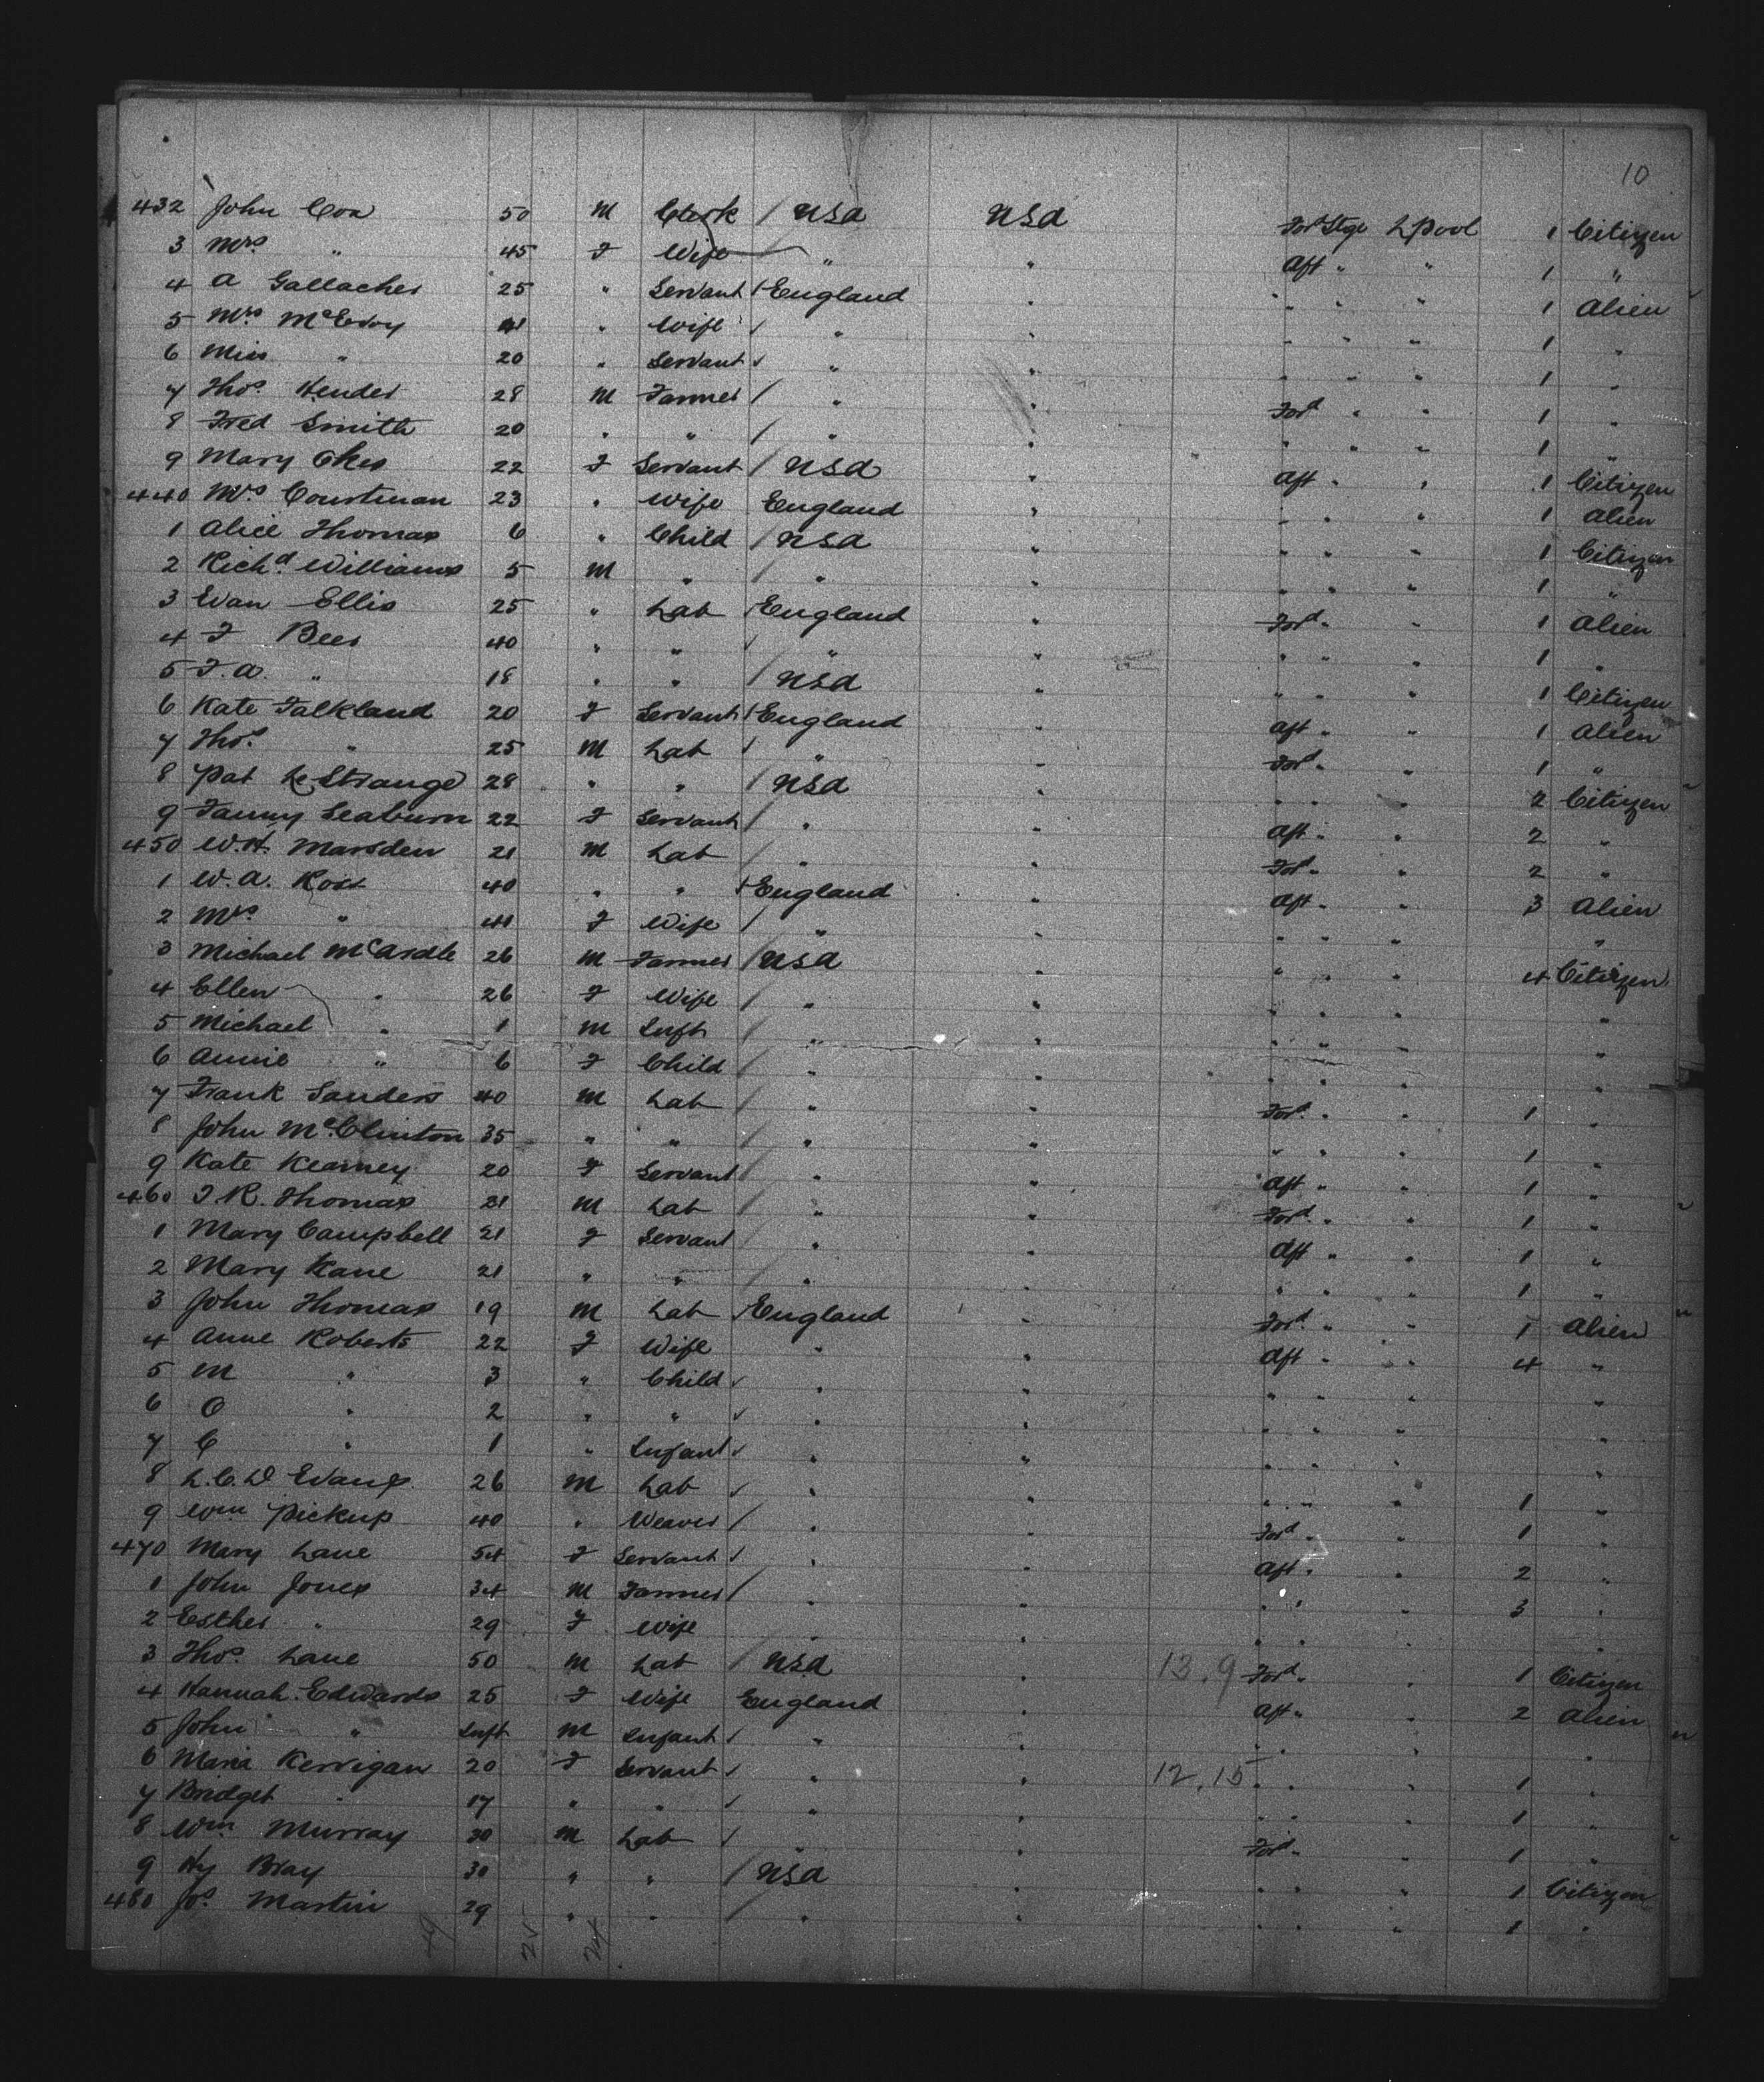 10
432 John Cox 50 M Clerk / USA USA Ford Stge LPool 1 Citizen
3 Mrs " 45 F Wife " " Aft " " 1 "
4 A Gallacher 25 " Servant / England " " " " 1 Alien
5 Mrs McEvoy 41 " Wife / " " " " " 1 "
6 Miss " 20 " Servant / " " " " " 1 "
7 Thos. Hender 28 M Farmer / " " Ford " " 1 "
8 Fred Smith 20 " " / " " " " " 1 "
9 Mary 22 F Servant / USA " Aft " " 1 Citizen
440 Mrs Courtman 23 " Wife England " " " " 1 Alien
1 Alice Thomas 6 " Child / USA " " " " 1 Citizen
2 Richd. Williams 5 M " / " " " " " 1 "
3 Evan Ellis 25 " Lab / England " Ford " " 1 Alien
4 F Bees 40 " " / " " " " " 1 "
5 F.A. " 18 " " / USA " " " " 1 Citizen
6 Kate Falkland 20 F Servant / England " Aft " " 1 Alien
7 Thos. " 25 M Lab / " " Ford " " 1 "
8 Pat LeStrange 28 " " / USA " " " " 2 Citizen
9 Fanny Seaburn 22 F Servant / " " Aft " " 2 "
450 W.H. Marsden 21 M Lab / " " Ford " " 2 "
1 W.A. Ross 40 " " / England " Aft " " 3 Alien
2 Mrs " 41 F Wife / " " " " " "
3 Michael McArdle 26 M Farmer / USA " " " " 4 Citizen
4 Ellen " 26 F Wife / " " " " " "
5 Michael " 1 M Inft / " " " " " "
6 Annie " 6 F Child / " " " " " "
7 Frank Sanders 40 M Lab / " " Ford " " 1 "
8 John McClinton 35 " " / " " " " " 1 "
9 Kate Kearney 20 F Servant / " " Aft " " 1 "
460 J.R. Thomas 21 M Lab / " " Ford " " 1 "
1 Mary Campbell 21 F Servant " " Aft " " 1 "
2 Mary Kane 21 " " / " " " " " 1 "
3 John Thomas 19 M Lab / England " Ford " " 1 Alien
4 Anne Roberts 22 F Wife " " Aft " " 4 "
5 M " 3 " Child / " " " " " "
6 O " 2 " " / " " " " " "
7 C " 1 " Infant / " " " " " "
8 L.C.D Evans 26 M Lab / " " " " " 1 "
9 Wm Pickup 40 " Weaver / " " Ford " " 1 "
470 Mary Lane 54 F Servant / " " Aft " " 2 "
1 John Jones 34 M Farmer / " " " " " 3 "
2 Esther " 29 F Wife " " " " " "
3 Thos. Lane 50 M Lab / USA " 13.9 Ford " " 1 Citizen
4 Hannah Edwards 25 F Wife England " Aft " " 2 Alien
5 John " Inft M Infant / " " " " " "
6 Maria Kerrigan 20 F Servant / " " 12.15 " " " 1 "
7 Bridget " 17 " " / " " " " " 1 "
8 Wm Murray 30 M Lab / " " Ford " " 1 "
9 Hy Bray 30 " " / USA " " " " 1 Citizen
480 Jos. Martin 29 " " / " " " " " 1 "
49 25 24